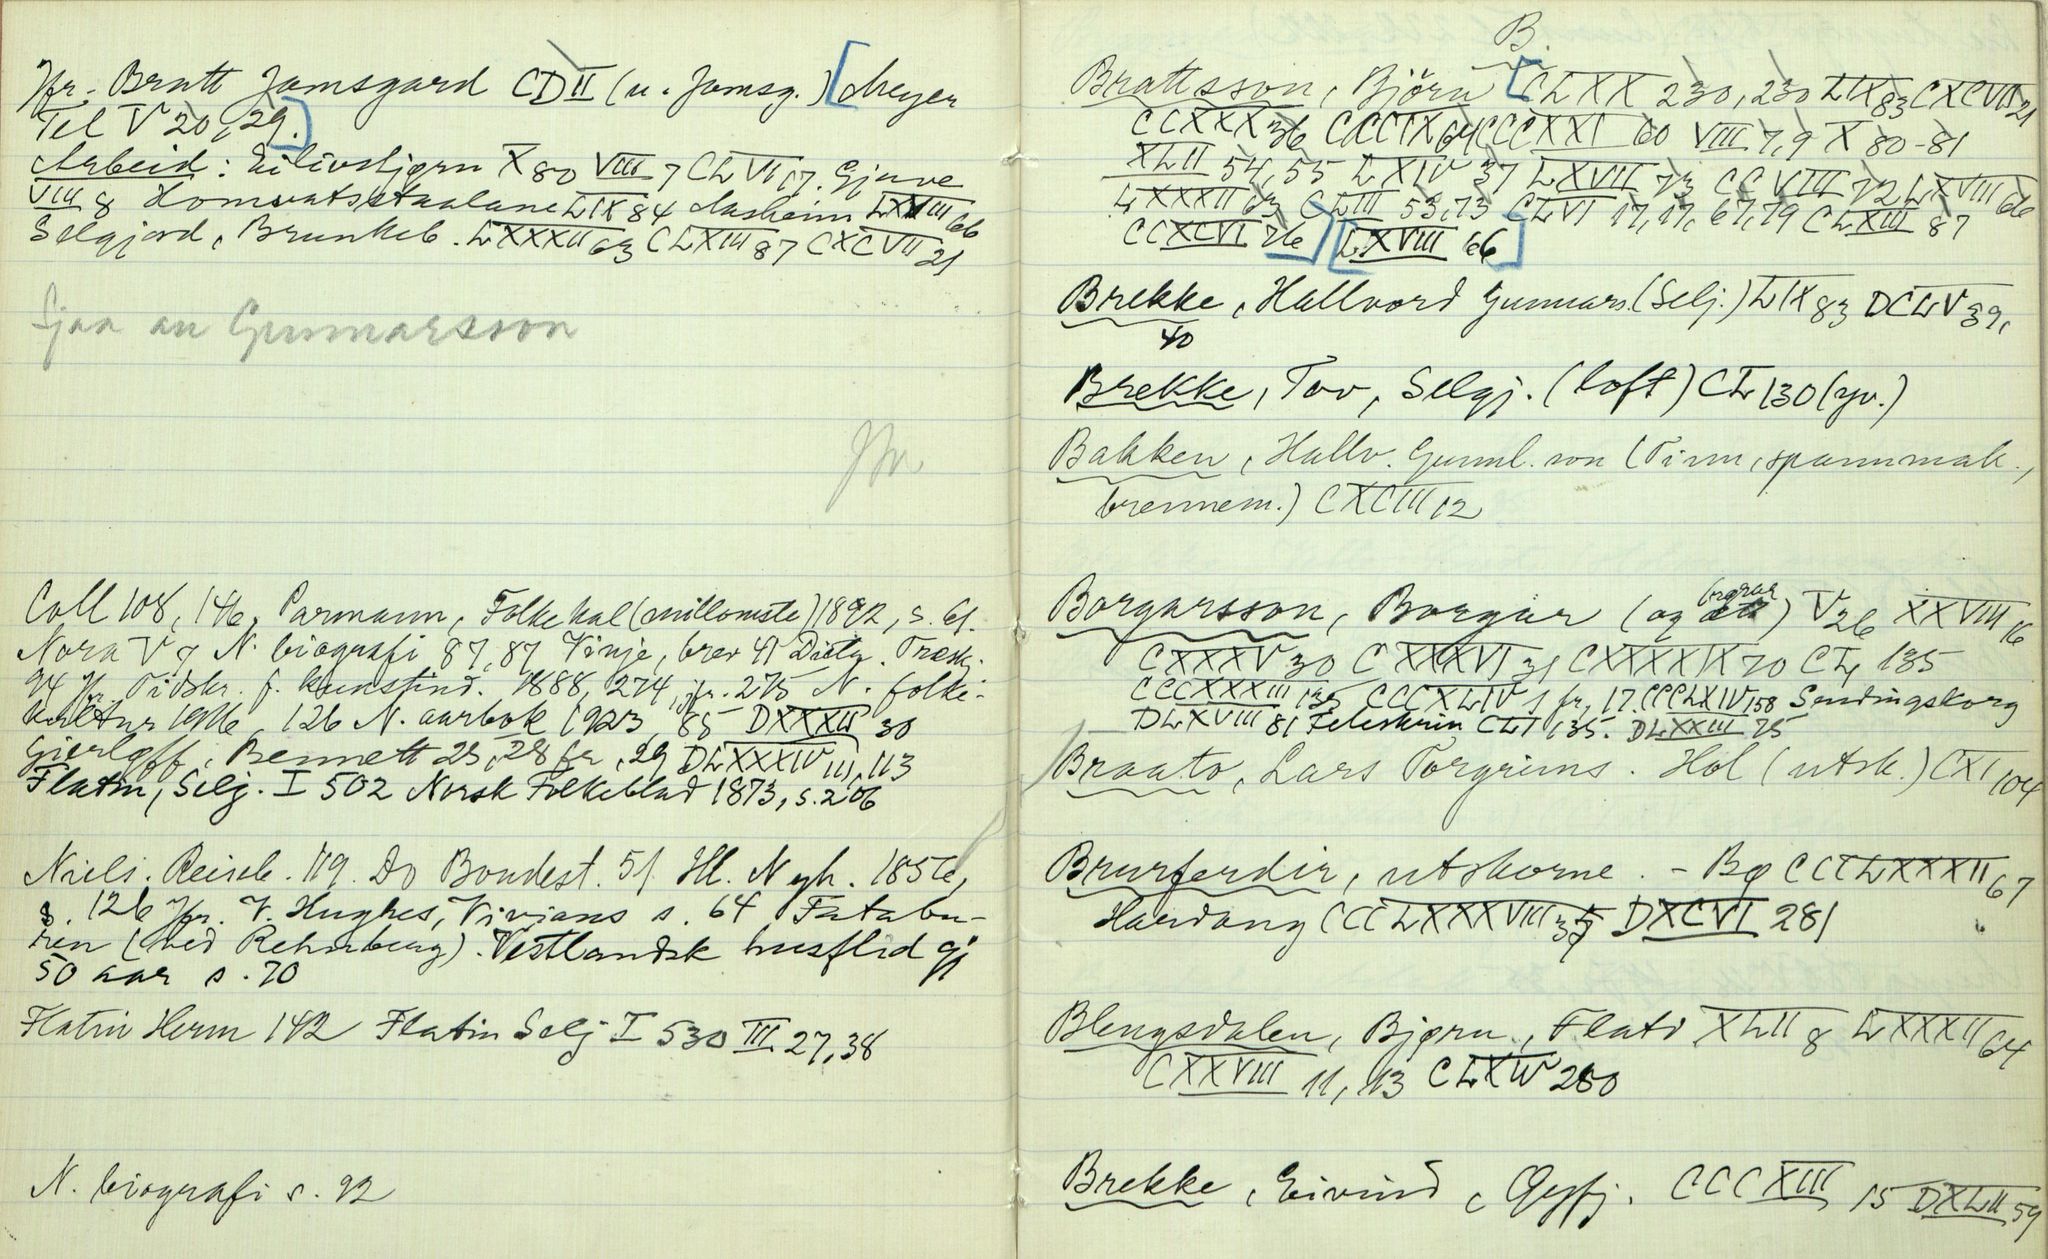 Jfr. Bratt Jamsgard CDII (u. Jamsg.) [Meyer
Tel V 20, 29.]
Arbeid: Eilivstjørn X 80 VIII 7 CLVI 17. Gjuve
VIII 8 Homvatsstaalane LIX 84 Aasheim LXVIII 66
Selgjord, Brunkeb. LXXXII 63 CLXIII 87 CXCVII 21
Sjaa au Gunnarsson
Coll 108, 146, Parmann, Folkekal (millomste) 1892, s. 61.
Nora V 7 N. biografi 87, 87 Vinje, brev 41 Dietr. Treskj.
94 Jfr. Tidskr. f. kunstind. 1888, 274, jfr. 275 N. folke-
kultur 1916, 126 N. aarbok 1923 85 DXXXII 30
Gierløff, Bennett 25, 28 fr, 29 DLXXXIV 111, 113
Flatin, Selj. I 502 Norsk Folkeblad 1873, s. 206
Niels. Reiseh. 119. Do Bondest. 51. Ill. Nyh. 1856,
s. 126 Jfr. V. Hughes, Vivians s. 64 Fatabu-
ren (ved Rehnberg). Vestlandsk husflid gj
50 aar s. 70
Flatin Herm 142 Flatin Selj I 530 III 27, 38
N. biografi s. 92
B.
Brattsson, Björn [CLXX 230, 230 LIX 83 CXCVII 21
CCXXX 36 CCCIX 64 CCCXXI 60 VIII 7, 9 X 80-81
XLII 54, 55 LXIV 37 LXVII 73 CCVIII 72 LXVIII 66
LXXXII 63 CLIII 53, 73 CLVI 17, 17, 67, 79 CLXIII 87
CCXCVI 76] [LXVIII 66]
Brekke, Hallvord Gunnars. (Selj.) LIX 83 DCLV 39,
40
Brekke, Tov, Selgj. (loft) CL 130 (yv.)
Bakken, Hallv. Gunnl. son (Tinn, spannmak.,
brennem.) CXCIII 12
Borgarsson, Borgar (og brørar) V 26 XXVIII 16
CXXXV 30 CXXXVI 31 CXXXXIX 70 CL 135
CCCXXXIII 135 CCCXLIV 1 fr, 17. CCCLXIV 158 Sendingskorg
DLXVIII 81 Teleskrin CLI 135. DLXXIII 75
Braato, Lars Torgrims. Hol (utsk.) CXI 104
Brurferdir, utskorne. - Bø CCCLXXXII 67
Hardang CCCLXXXVIII 37 DXCVI 281
Blengsdalen, Bjørn, Flatd XLII 8 LXXXII 64
CXXVIII 11, 113 CLXIV 280
Brekke, Eivind, Øyfj. CCCXIII 15 DXLII 59